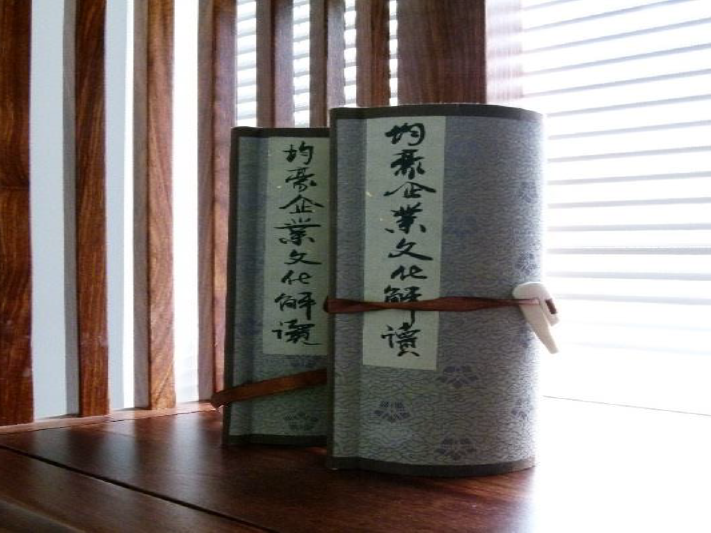 均豪企業文化解讀
均豪企業文化解讀